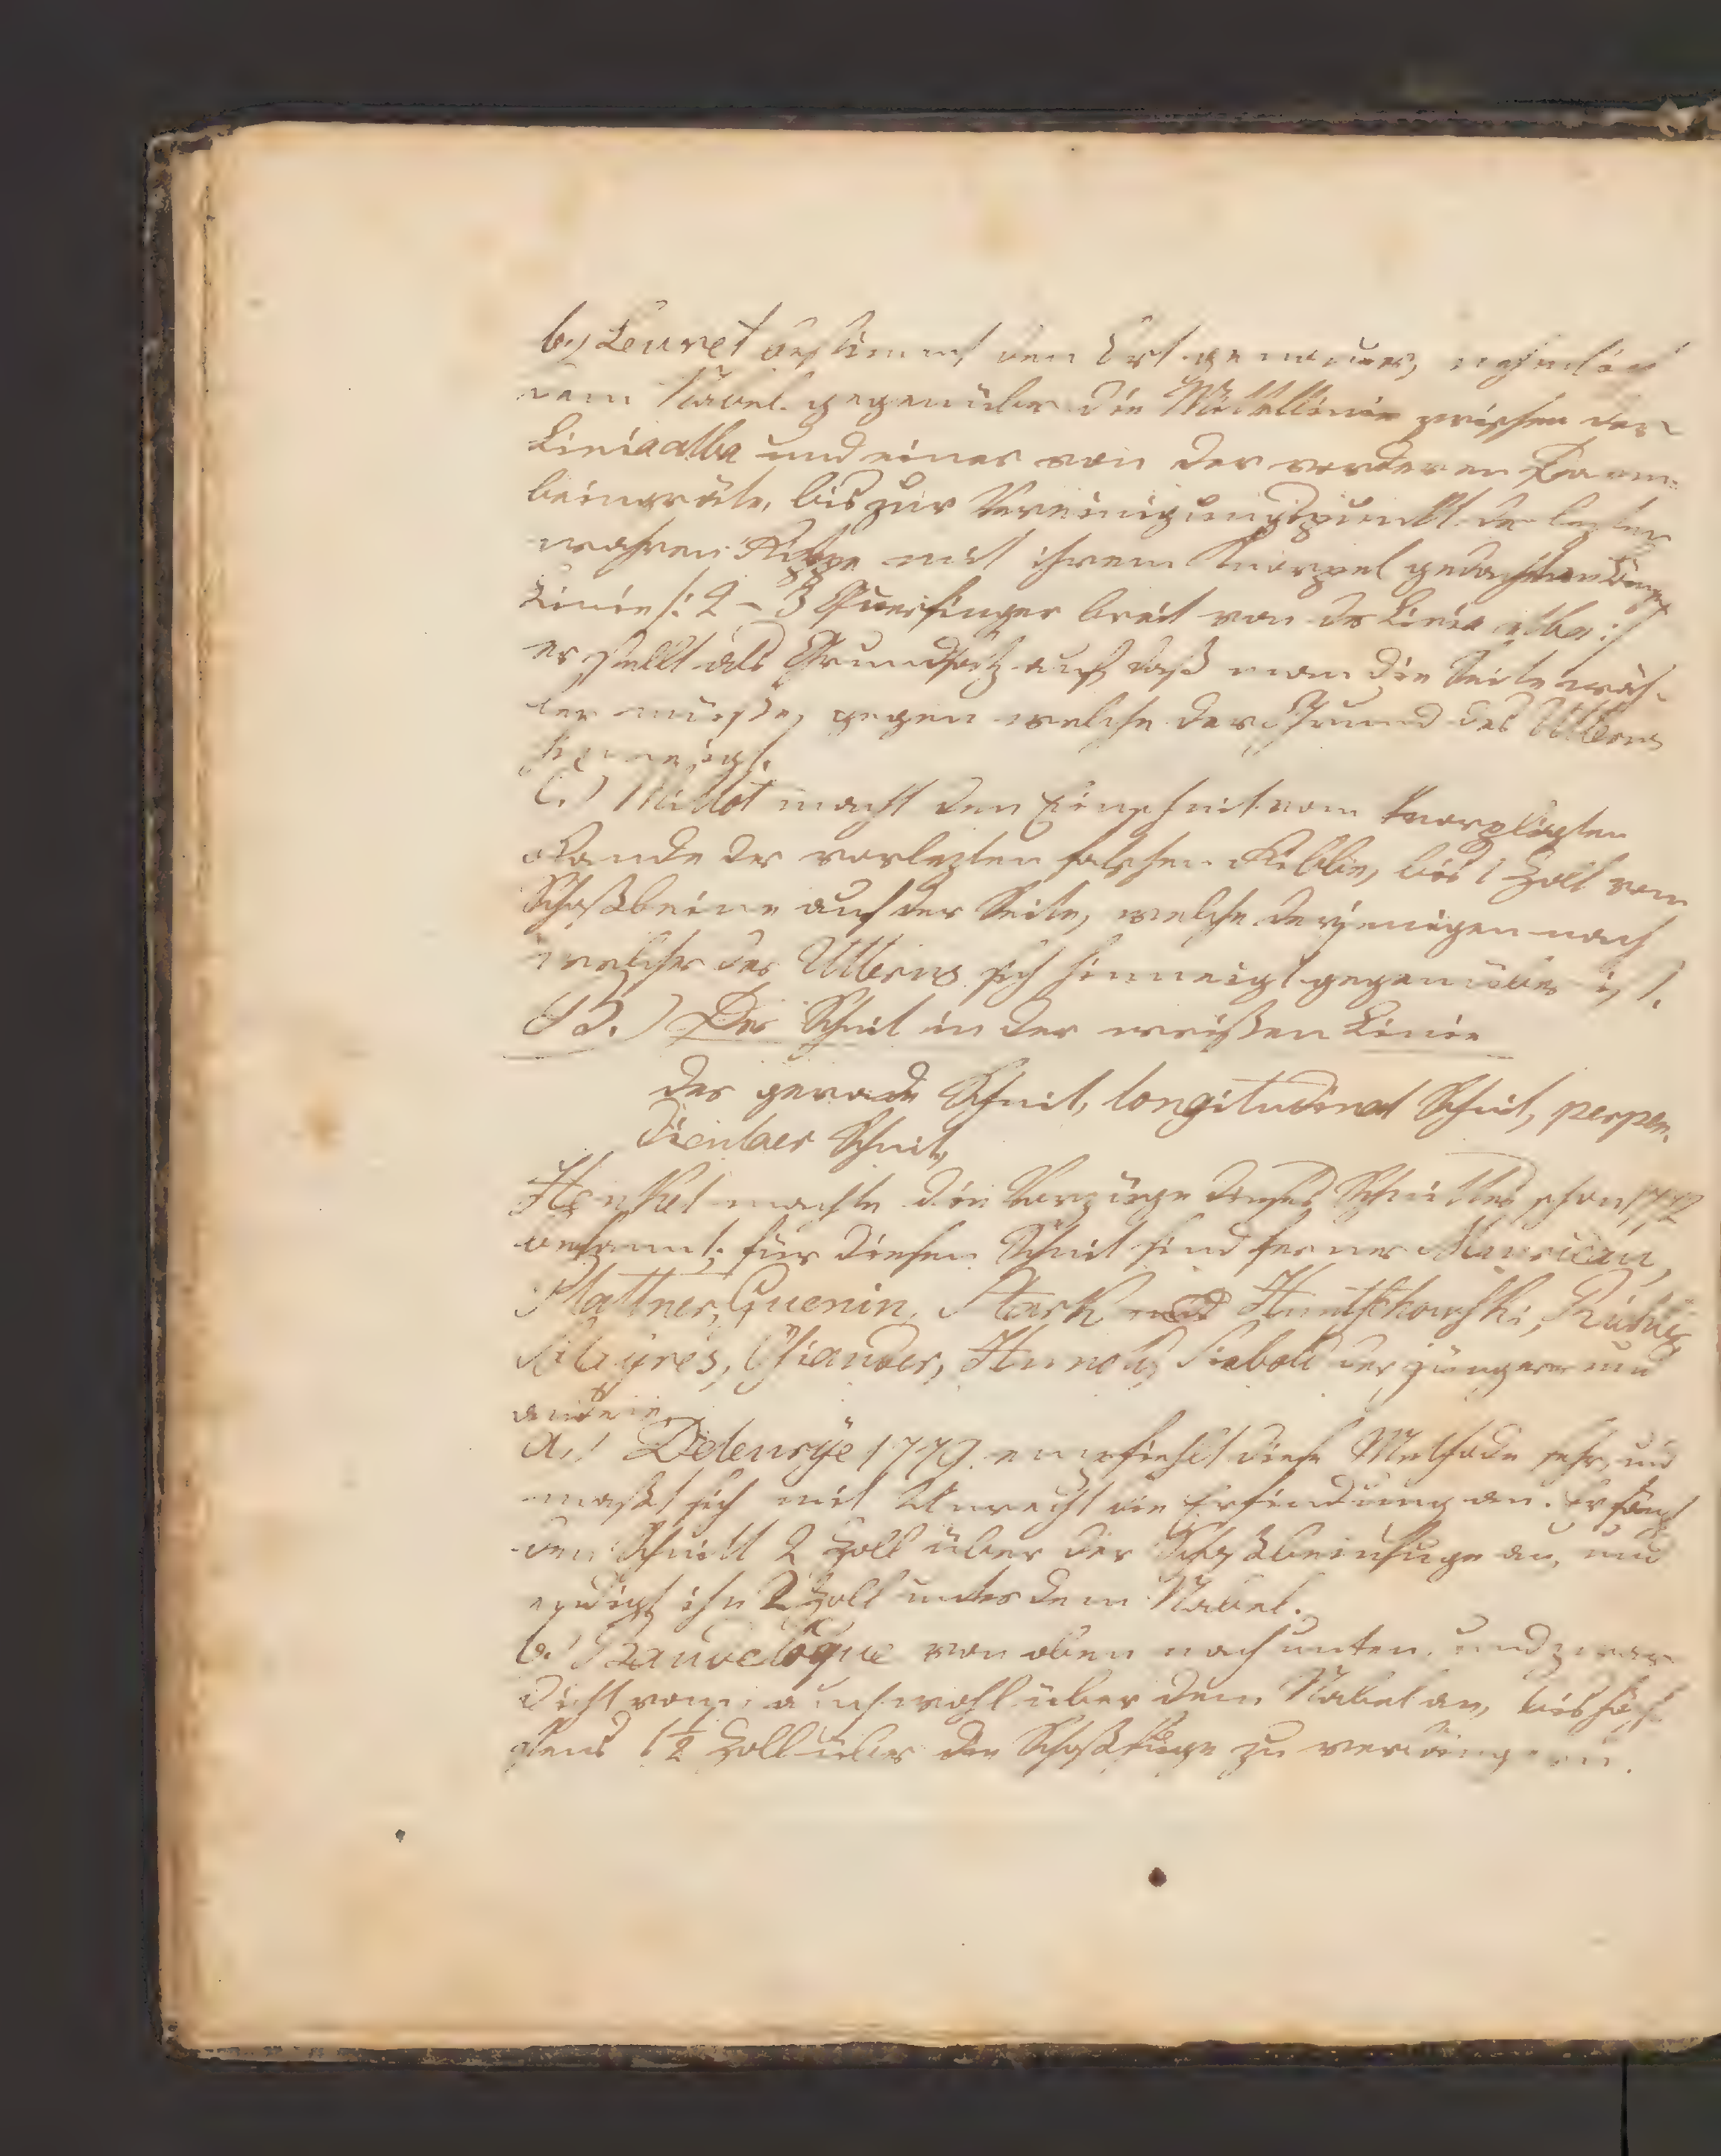 b.) Levret bestimmt den Ort genauer, nehmlich
dem Nabel gegenüber die Mittellinie zwischen der
Linia alba und einer von der vorderen Darm-
beingräte, bis zur Vereinigungspunkt der lezten
wahren Rippe mit ihrem Knorpel gedachten
Linie /: 2 – 3 Querfinger breit von der Linia alba :/
er stellt als Grundsatz auf daß man die Seite wäh-
len müsse, gegen welche der Grund des Uterus
hinneigt.
c.) Millot macht den Einschnit vom knorplichten
Rande der vorlezten falschen Ribbe, bis 1 Zoll vom
Schoßbeine auf der Seite, welche derjenigen nach
welcher der Uterus sich hinneigt gegenüber ist.
B.) Der Schnit in der weißen Linie
der gerade Schnit, longitudinal Schnit, perpen-
dicular Schnit,
Henkel machte die Vorzüge dieses Schnittes schon 1772
bekannt; für diesen Schnit sind ferner Mauriceau,
Plattner, Guenin, Stark und Huntschowski,
Osiander, Siebold der jüngere und
andere.
a.) Deleurÿe 1779. empfiehlt diese Methode sehr, und
maßt sich mit Unrecht die Erfindung an. Er fängt
den Schnitt 2 Zoll über der Schoßbeinfuge an, und
endigt ihn 2 Zoll unter dem Nabel.
b.) Baudelogue von oben nach unten, und zwar
dicht vom, auch wohl über dem Nabel an, bis höch-
stens 1½ Zoll über die Schoßfuge zu verlängern.